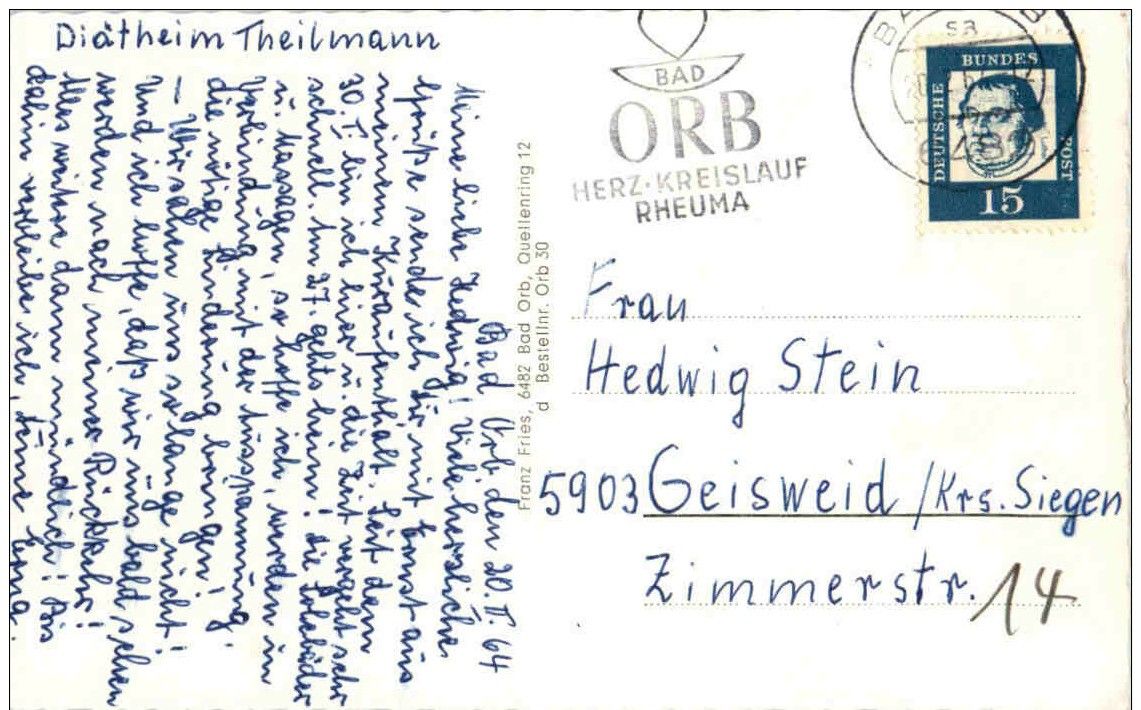 Diätheim Theilmann
Bad Orb den 20. II. 64
Meine liebe Hedwig! Viele herzliche
Grüße sende ich Dir mit Ernst aus
meinem Kuraufenthalt. Seit dem
30. I. bin ich hier u. die Zeit vergeht sehr
schnell. Am 27. gehts heim! Die Solebäder
u. Massagen, so hoffe ich, werden in
Verbindung mit der Ausspannung
die nötige Linderung bringen!
– Wir sahen uns solange nicht!
Und ich hoffe, daß wir uns bald sehen
werden nach meiner Rückkehr!
Alles weitere dann mündlich! Bis
dahin verbleibe ich, Deine Erna.
Franz Fries, 6482 Bad Orb, Quellenring 12
d Bestellnr. Orb 30
BAD
ORB
HERZ·KREISLAUF
RHEUMA
DEUTSCHE
BUNDES
POST
15
Frau
Hedwig Stein
5903 Geisweid /Krs. Siegen
Zimmerstr. 14